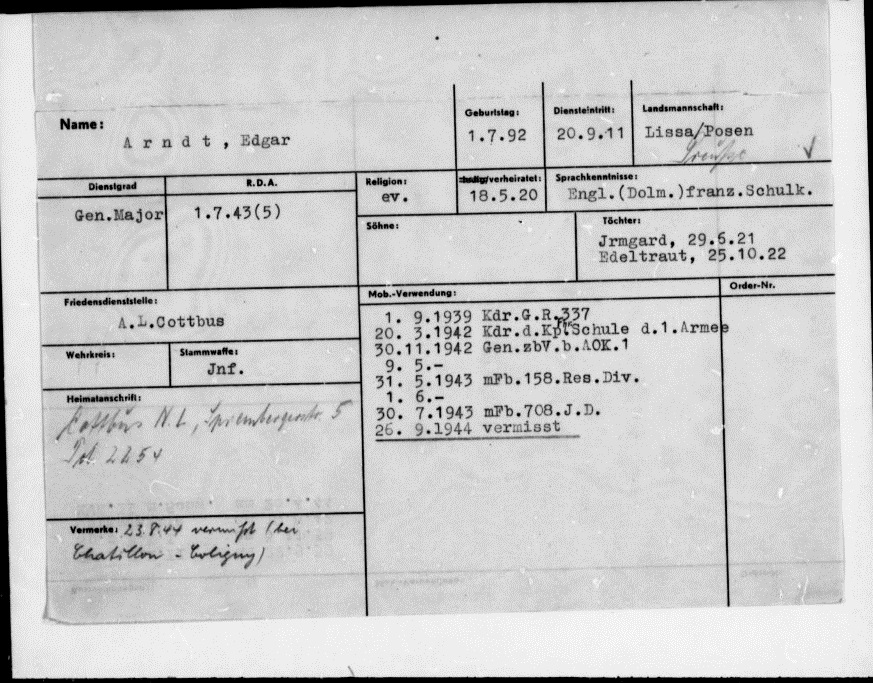 Name:
Arndt, Edgar
Geburtstag:
1.7.92
Diensteintritt:
20.9.11
Landsmannschaft:
Lissa/Posen
Preuße
Dienstgrad
Gen.Major
R.D.A.
1.7.43(5)
Religion:
ev.
ledig/verheiratet:
18.5.20
Sprachkenntnisse:
Engl.(Dolm.)franz.Schulk.
Söhne:
Töchter:
Jrmgard, 29.6.21
Edeltraut, 25.10.22
Friedensdienststelle:
A.L.Cottbus
Wehrkreis:
Stammwaffe:
Jnf.
Heimatanschrift:
Cottbus N.L., Sprembergerstr. 5
Tel. 2254
Vermerke: 23.8.44 vermißt (bei
Chatillon - Coligny)
Mob.-Verwendung:
Order-Nr.
1. 9.1939 Kdr.G.R.337
20. 3.1942 Kdr.d.Kp.Fhr.Schule d.1.Armee
30.11.1942 Gen.zbV.b.AOK.1
9. 5.-
31. 5.1943 mFb.158.Res.Div.
1. 6.-
30. 7.1943 mFb.708.J.D.
26. 9.1944 vermisst